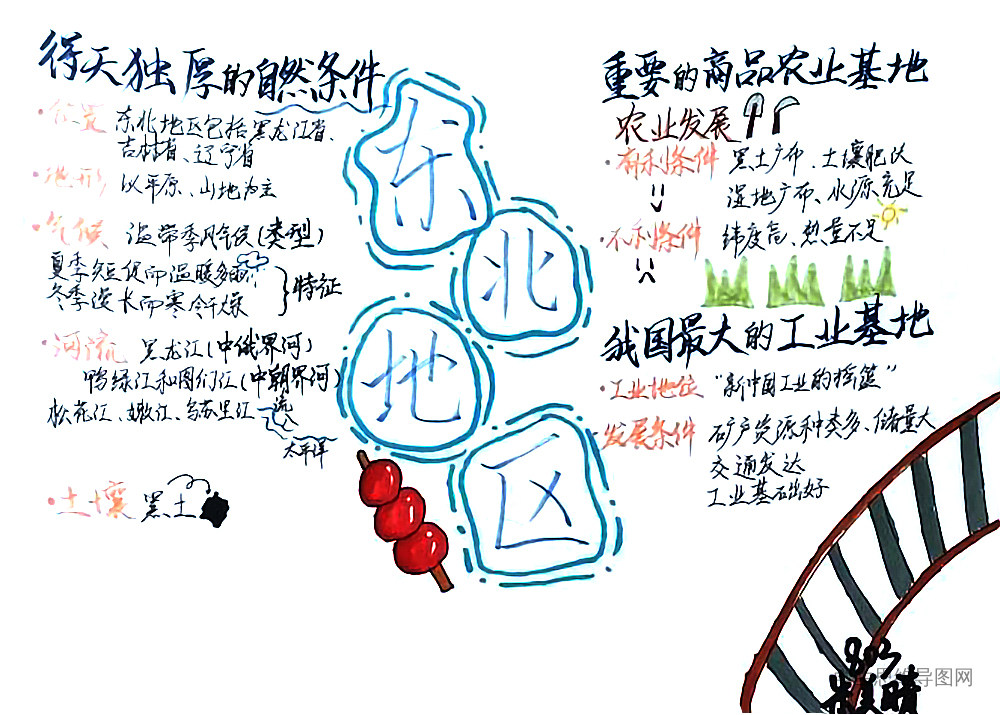 得天独厚的自然条件
·位置 东北地区包括黑龙江省、
吉林省、辽宁省
·地形 以平原、山地为主
·气候 温带季风气候(类型)
夏季短促而温暖多雨
冬季漫长而寒冷干燥
}特征
·河流 黑龙江(中俄界河)
鸭绿江和图们江(中朝界河)
松花江、嫩江、乌苏里江—流
太平洋
·土壤 黑土
东
北
地
区
重要的商品农业基地
农业发展
·有利条件 黑土广布、土壤肥沃
湿地广布、水源充足
·不利条件 纬度高、热量不足
我国最大的工业基地
·工业地位 "新中国工业的摇篮"
·发展条件 矿产资源种类多、储量大
交通发达
工业基础好
803
思维导图网